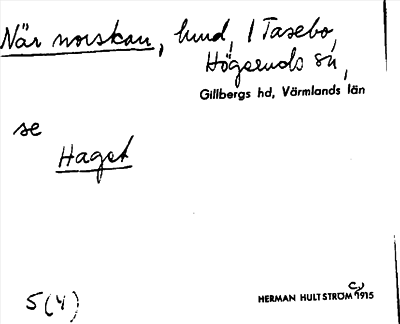 När norskan, hund, 1 Tasebo,
Högseruds sn,
Gillbergs hd, Värmlands län
se
Haget
5(4)
HERMAN HULTSTRÖM c) 1915